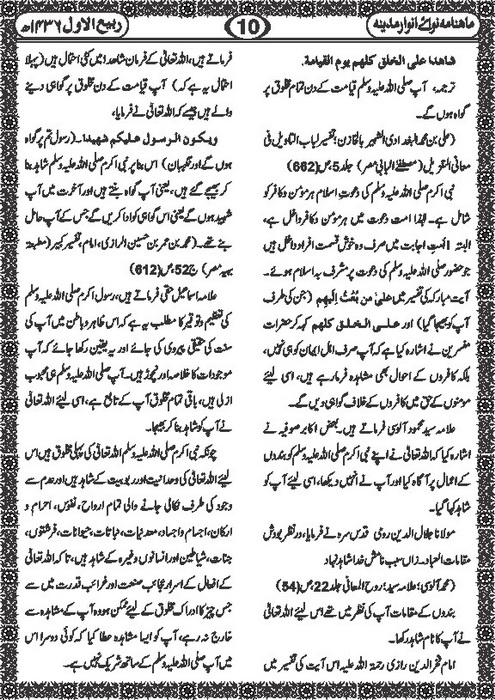 ماهنامہ نوائے انوار مدینہ
10
ربیع الاول ۱۴۳۶ھ
شاهدا علی الخلق کلهم یوم القیامة.
ترجمہ: آپ صلی اللہ علیہ وسلم قیامت کے دن تمام خلق پر
گواہ ہوں گے۔
(علی بن محمد البغدادی الشہیر بالخازن؛ تفسیر لباب التاویل فی
معانی التنزیل (مصطفیٰ البابی مصر) جلد 5، ص (662)
نبی اکرم صلی اللہ علیہ وسلم کی دعوتِ اسلام ہر مومن و کافر کو
شامل ہے۔ لہٰذا امت دعوت میں ہر مومن و کافر داخل ہے،
البتہ! اُمتِ اجابت میں صرف وہ خوش قسمت افراد داخل ہیں
جو حضور صلی اللہ علیہ وسلم کی دعوت پر مشرف بہ اسلام ہوئے۔
آیت مبارکہ کی تفسیر میں علیٰ من بُعِثتَ اِلیهم (جن کی طرف
آپ کو بھیجا گیا) اور علی الخلق کلهم کہہ کر حضرات
مفسرین نے اشارہ کیا ہے کہ آپ صرف اہل ایمان کو ہی نہیں،
بلکہ کافروں کے احوال بھی مشاہدہ فرما رہے ہیں، اسی لیئے
مومنوں کے حق میں کافروں کے خلاف گواہی دیں گے۔
علامہ سید محمود آلوسی فرماتے ہیں۔ بعض اکابر صوفیہ نے
اشارہ کیا کہ اللہ تعالیٰ نے اپنے نبی اکرم صلی اللہ علیہ وسلم کو بندوں
کے اعمال پر آگاہ کیا اور آپ نے انہیں دیکھا، اسی لیئے آپ کو
شاہد کہا گیا۔
مولانا جلال الدین رومی قدس سرہ نے فرمایا، در نظر بودش
مقامات العباد۔ زاں سبب نامش خدا شاہد نہاد
(محمود آلوسی؛ علامہ سید؛ روح المعانی جلد 22، ص (54)
بندوں کے مقامات آپ کی نظر میں تھے اس لیئے اللہ تعالیٰ
نے آپ کا نام شاہد رکھا۔
امام فخر الدین رازی رحمۃ اللہ علیہ اس آیت کی تفسیر میں
فرماتے ہیں، اللہ تعالیٰ کے فرمان شاھدا میں کئی احتمال ہیں (پہلا
احتمال یہ ہے کہ) آپ قیامت کے دن مخلوق پر گواہی دینے
والے ہیں جیسے کہ اللہ تعالیٰ نے فرمایا،
ویکون الرسول علیکم شهیدا۔ (رسول تم پر گواہ
ہوں گے اور نگہبان) اس بنا پر نبی اکرم صلی اللہ علیہ وسلم شاہد بنا
کر بھیجے گئے ہیں، یعنی آپ گواہ بنتے ہیں اور آخرت میں آپ
شہید ہوں گے یعنی اس گواہی کو ادا کریں گے جس کے آپ حامل
بنے تھے۔ (محمد بن عمر بن حسین الرازی، امام، تفسیر کبیر (مطبعہ
بہیہ مصر) ج52، ص(612)
علامہ اسماعیل حقی فرماتے ہیں، رسول اکرم صلی اللہ علیہ وسلم
کی تعظیم و توقیر کا مطلب یہ ہے کہ اس ظاہر و باطن میں آپ کی
سنت کی حقیقی پیروی کی جائے اور یہ یقین رکھا جائے کہ آپ
موجودات کا خلاصہ اور نچوڑ ہیں۔ آپ صلی اللہ علیہ وسلم ہی محبوب
ازلی ہیں، باقی تمام مخلوق آپ کے تابع ہے، اسی لیئے اللہ تعالیٰ
نے آپ کو شاہد بنا کر بھیجا۔
چونکہ نبی اکرم صلی اللہ علیہ وسلم اللہ تعالیٰ کی پہلی مخلوق ہیں اس
لیئے اللہ تعالیٰ کی وحدانیت اور ربوبیت کے شاہد ہیں اور عدم سے
وجود کی طرف نکالی جانے والی تمام ارواح، نفوس، احرام و
ارکان، اجسام و اجساد، معدنیات، نباتات، حیوانات، فرشتوں،
جنات، شیاطین اور انسانوں وغیرہ کے شاہد ہیں، تاکہ اللہ تعالیٰ
کے افعال کے اسرار عجائب صنعت اور غرائب قدرت میں سے
جس چیز کا ادراک مخلوق کے لیئے ممکن ہو وہ آپ کے مشاہدہ سے
خارج نہ رہے، آپ کو ایسا مشاہدہ عطا کیا کہ کوئی دوسرا اس
میں آپ صلی اللہ علیہ وسلم کے ساتھ شریک نہیں ہے۔